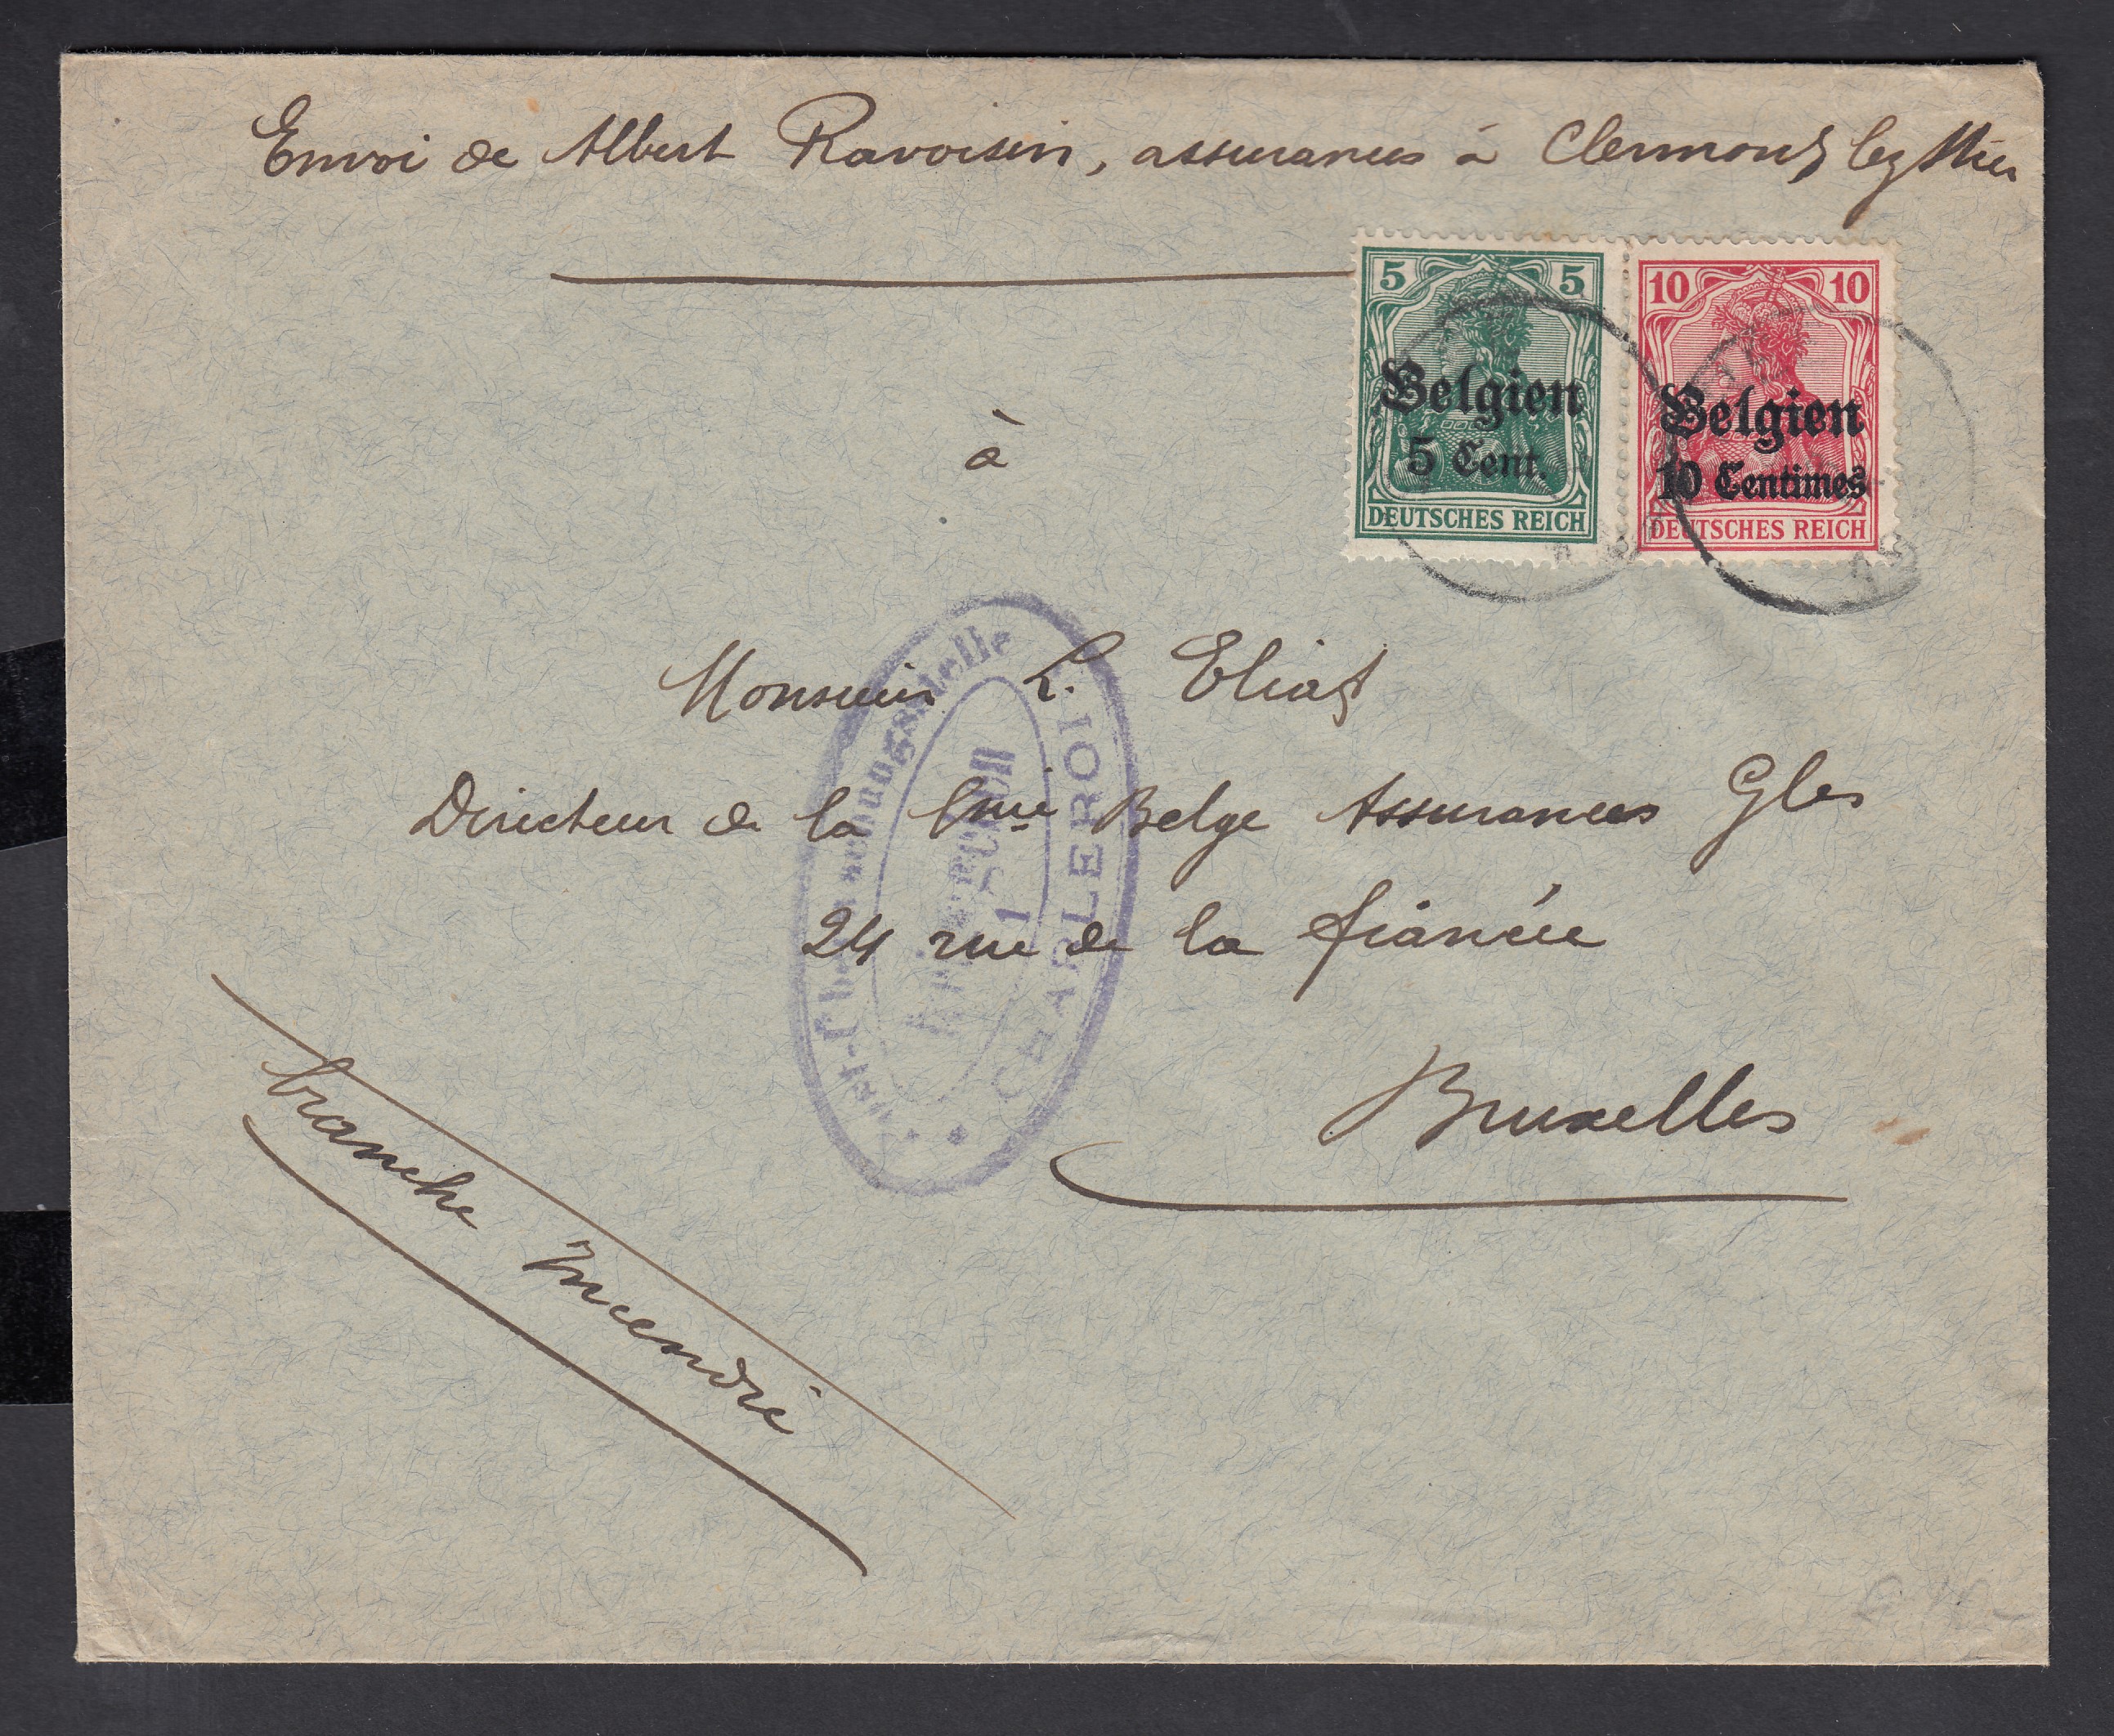 Envoi de Albert Ravoisin, assurances à Clermont lez
5 5
Belgien
5 Cent.
DEUTSCHES REICH
10 10
Belgien
10 Centimes
DEUTSCHES REICH
à
Monsieur L. Eliat
Directeur de la Cnie Belge Assurances Gles
24 rue de la fiancée
Bruxelles
branche Incendie
CHARLEROI